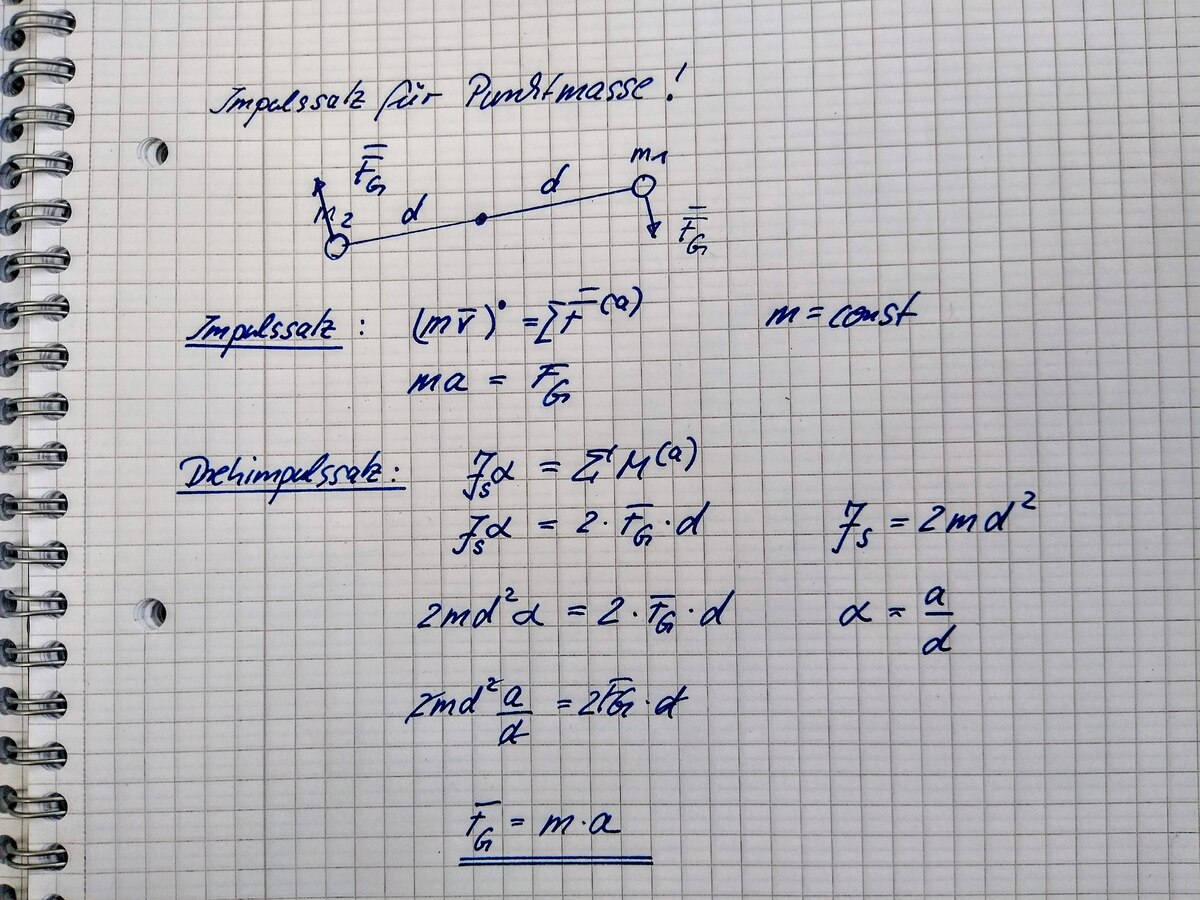 Impulssatz für Punktmasse!
F̅_G d d m₁
m₂ F̅_G
Impulssatz: (m v̅)˙ = ∑ F̅^(a) m = const
ma = F_G
Drehimpulssatz: J_s α = ∑ M^(a)
J_s α = 2 · F_G · d J_s = 2md²
2md²α = 2 · F_G · d α = a/d
2md² a/d = 2F_G · d
F_G = m · a